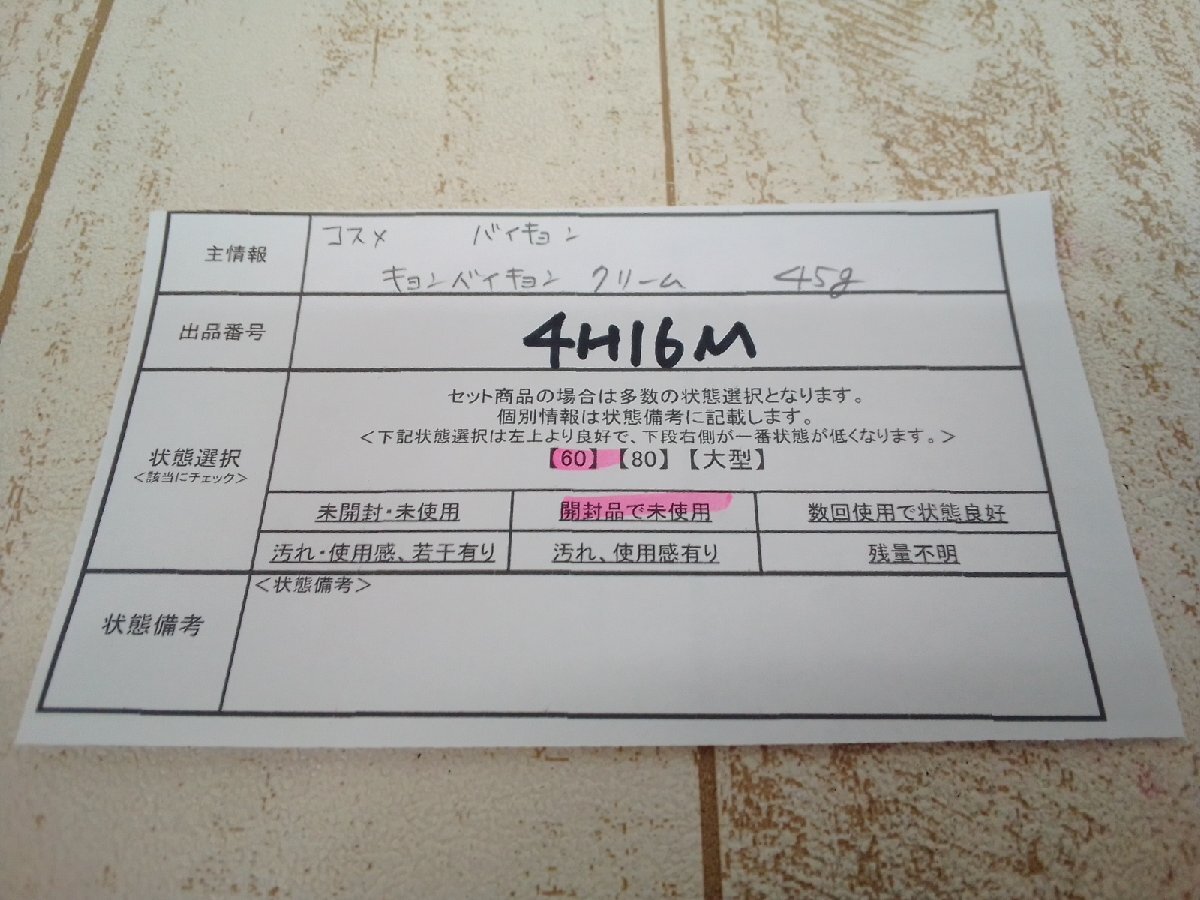 主情報
コスメ バイキョン
キョンバイキョン クリーム 45g
出品番号
4H16M
状態選択
<該当にチェック>
セット商品の場合は多数の状態選択となります。
個別情報は状態備考に記載します。
<下記状態選択は左上より良好で、下段右側が一番状態が低くなります。>
【60】【80】【大型】
未開封・未使用 開封品で未使用 数回使用で状態良好
汚れ・使用感、若干有り 汚れ、使用感有り 残量不明
状態備考
<状態備考>